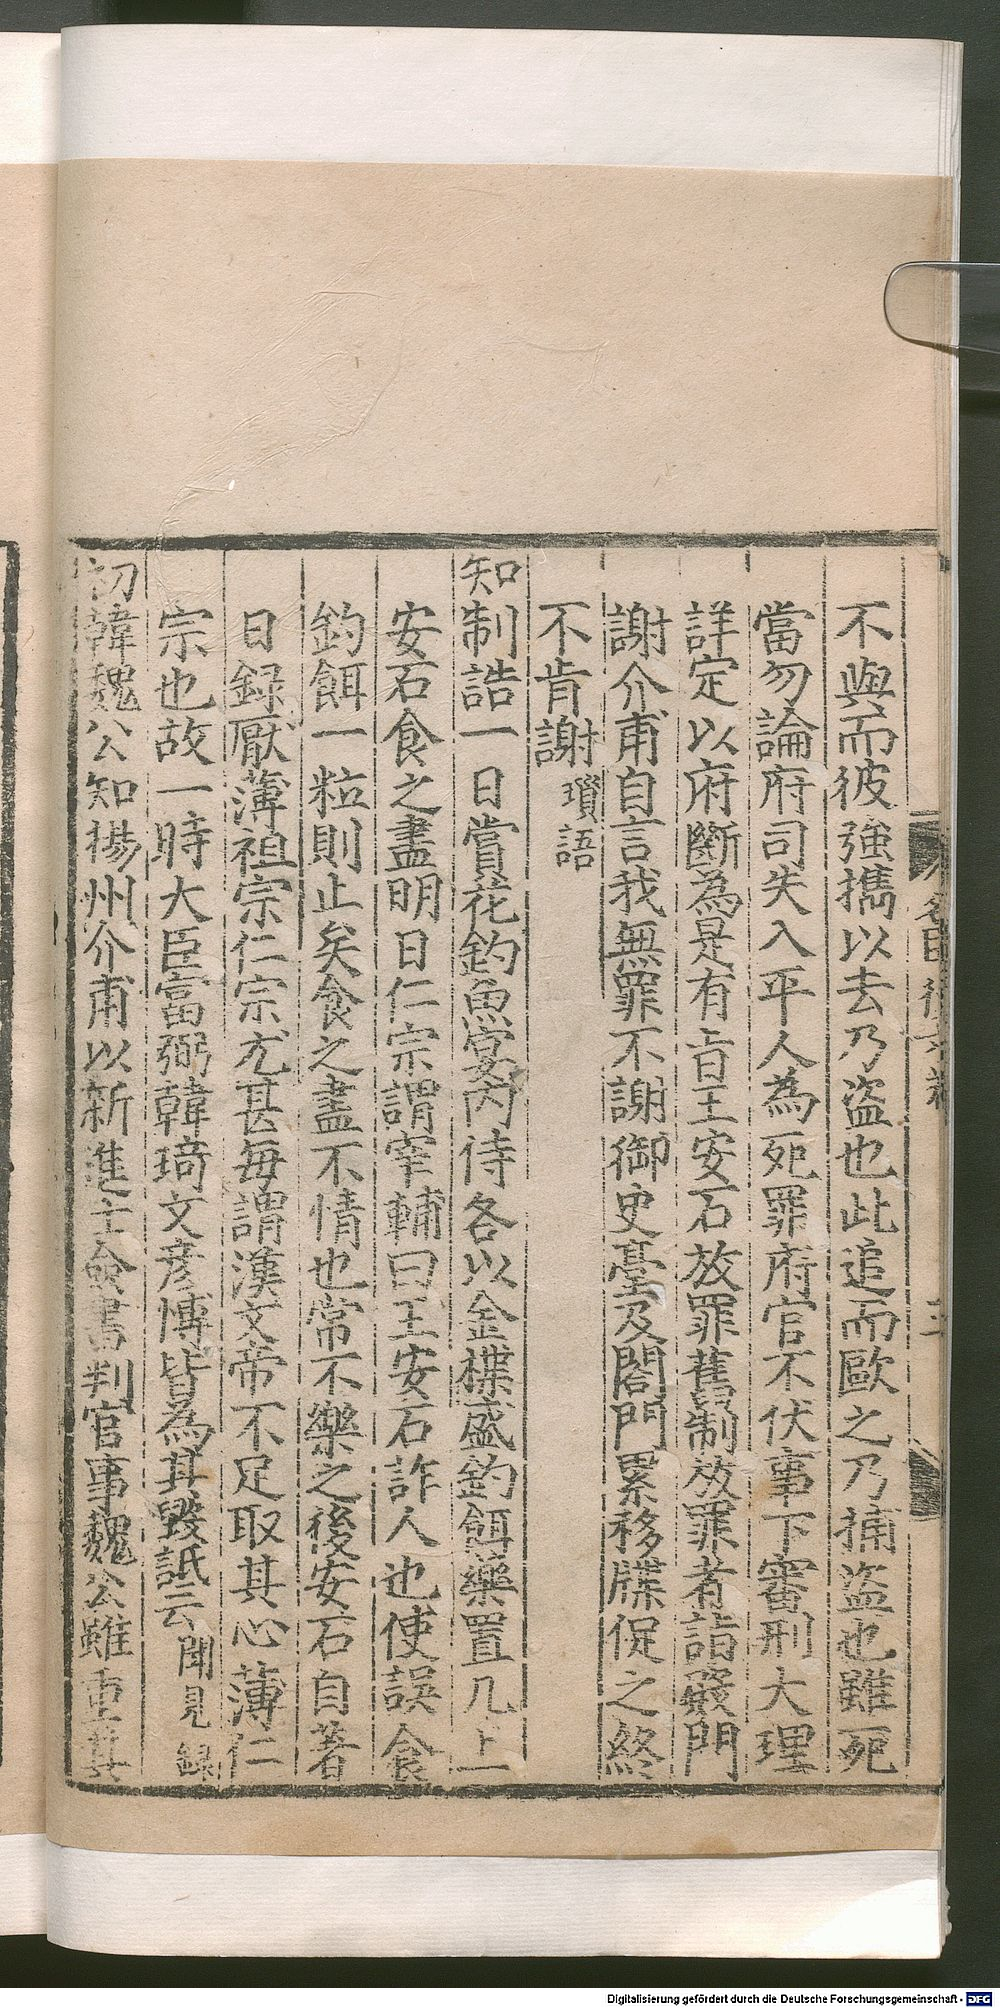 不與而彼強擕以去乃盜也此追而歐之乃捕盜也雖死
當勿論府司失入平人為死罪府官不伏事下審刑大理
詳定以府斷為是有旨王安石放罪舊制放罪者詣殿門
謝介甫自言我無罪不謝御史臺及閤門累移牒促之終
不肯謝 瑣語
知制誥一日賞花釣魚宴內侍各以金楪盛釣餌藥置几上一
安石食之盡明日仁宗謂宰輔曰王安石詐人也使誤食
釣餌一粒則止矣食之盡不情也常不樂之後安石自著
日録厭薄祖宗仁宗尤甚每謂漢文帝不足取其心薄仁
宗也故一時大臣富弼韓琦文彥博皆為其毀詆云 聞見錄
初韓魏公知揚州介甫以新進士僉書判官事魏公雖重其
Digitalisierung gefördert durch die Deutsche Forschungsgemeinschaft - DFG